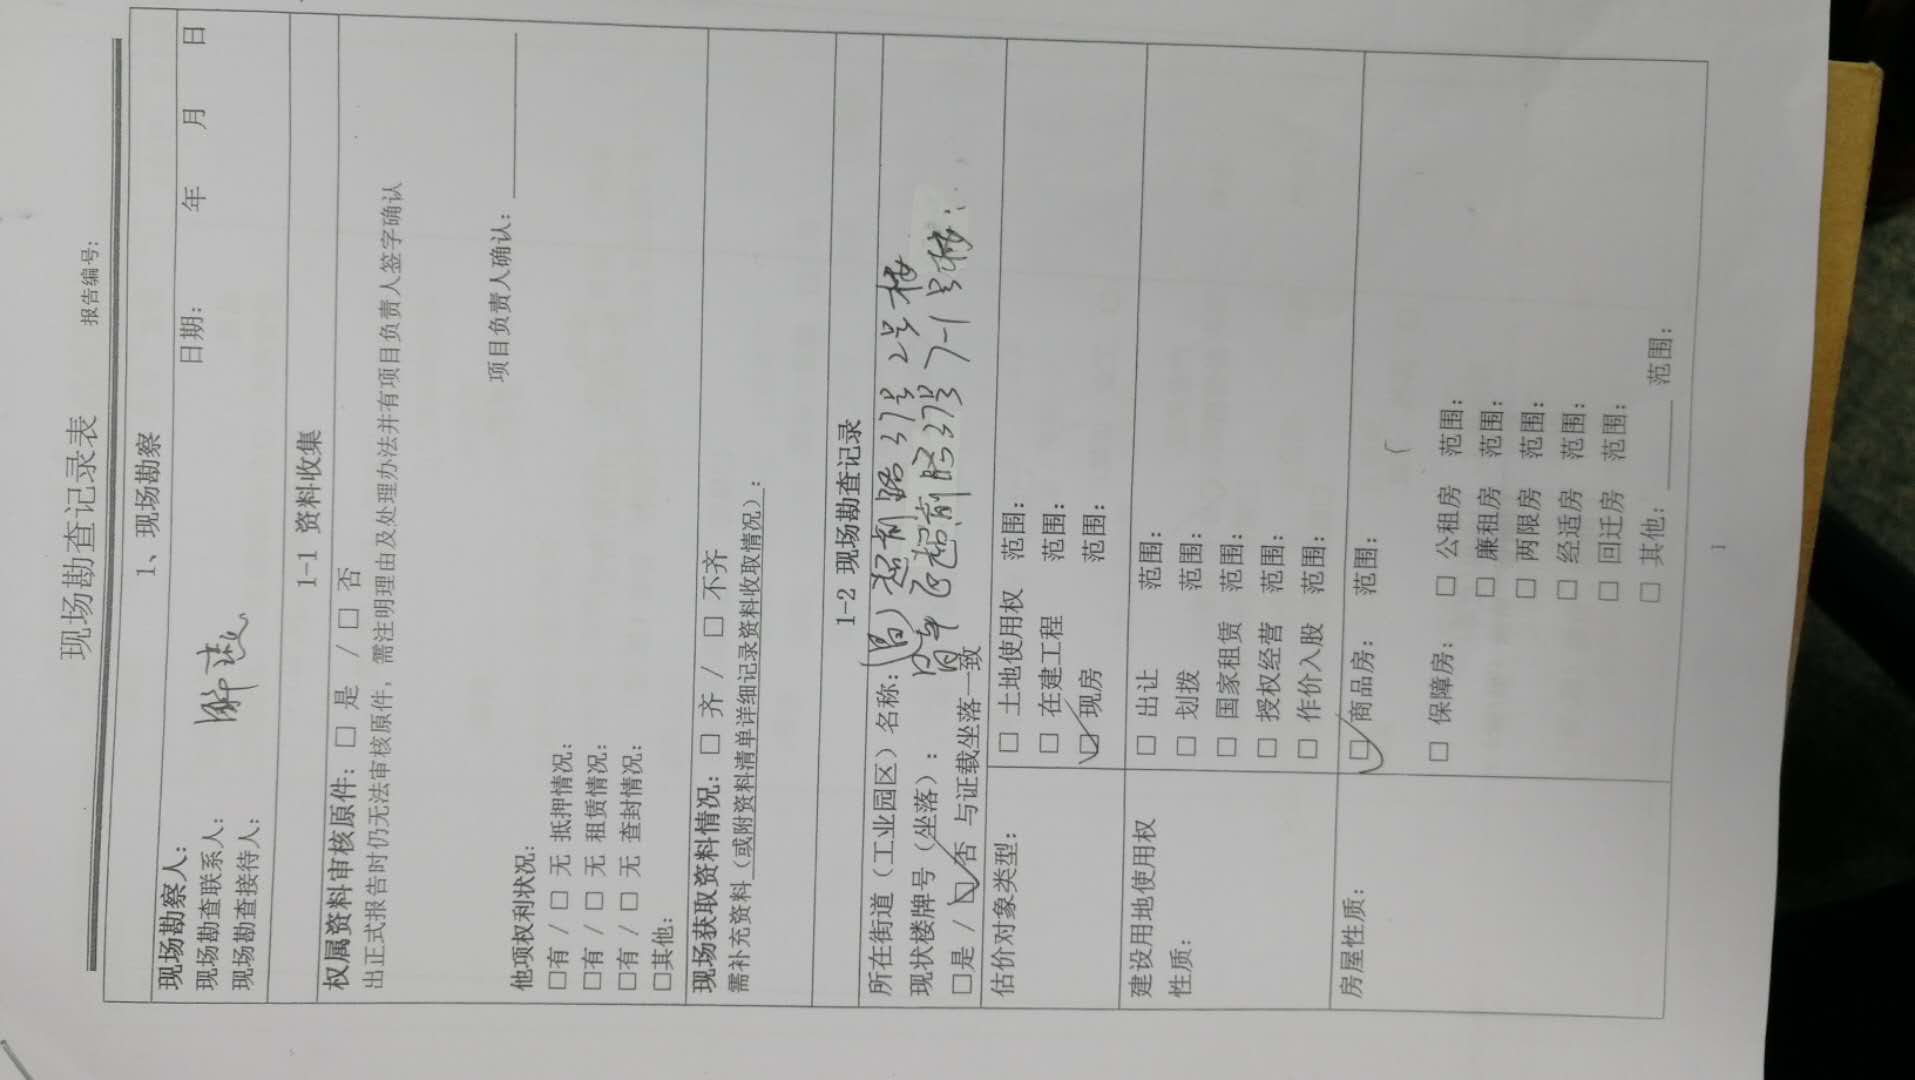 现场勘查记录表
报告编号:
1、现场勘察
现场勘察人: 日期: 年 月 日
现场勘查联系人:
现场勘查接待人:
1-1 资料收集
权属资料审核原件: □ 是 / □ 否
出正式报告时仍无法审核原件, 需注明理由及处理办法并有项目负责人签字确认
项目负责人确认:
他项权利状况:
□有 / □ 无 抵押情况:
□有 / □ 无 租赁情况:
□有 / □ 无 查封情况:
□其他:
现场获取资料情况: □ 齐 / □ 不齐
需补充资料(或附资料清单详细记录资料收取情况):
1-2 现场勘查记录
所在街道（工业园区）名称: 超前路37号2号楼
现状楼牌号（坐落）: 昌平区超前路37号7-1号楼
□是 / □否 与证载坐落一致
估价对象类型: □ 土地使用权 范围:
□ 在建工程 范围:
□ 现房 范围:
建设用地使用权性质: □ 出让 范围:
□ 划拨 范围:
□ 国家租赁 范围:
□ 授权经营 范围:
□ 作价入股 范围:
房屋性质: □ 商品房: 范围:
□ 保障房: □ 公租房 范围:
□ 廉租房 范围:
□ 两限房 范围:
□ 经适房 范围:
□ 回迁房 范围:
□ 其他: 范围:
1